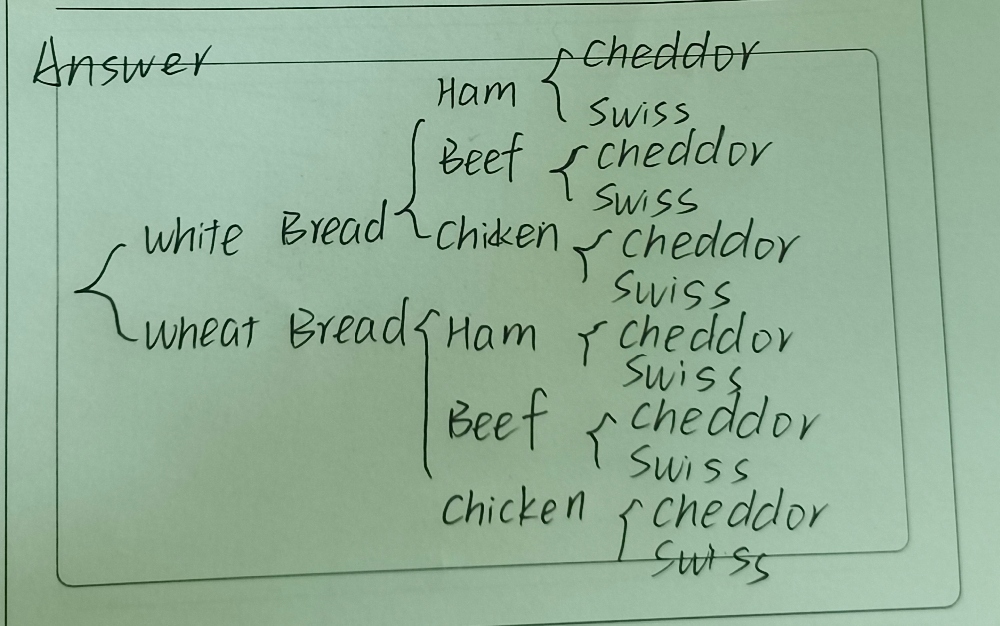 Answer
Ham { Cheddor
Swiss
Beef { Cheddor
Swiss
White Bread { Chicken { Cheddor
Swiss
Wheat Bread { Ham { Cheddor
Swiss
Beef { Cheddor
Swiss
Chicken { Cheddor
Swiss